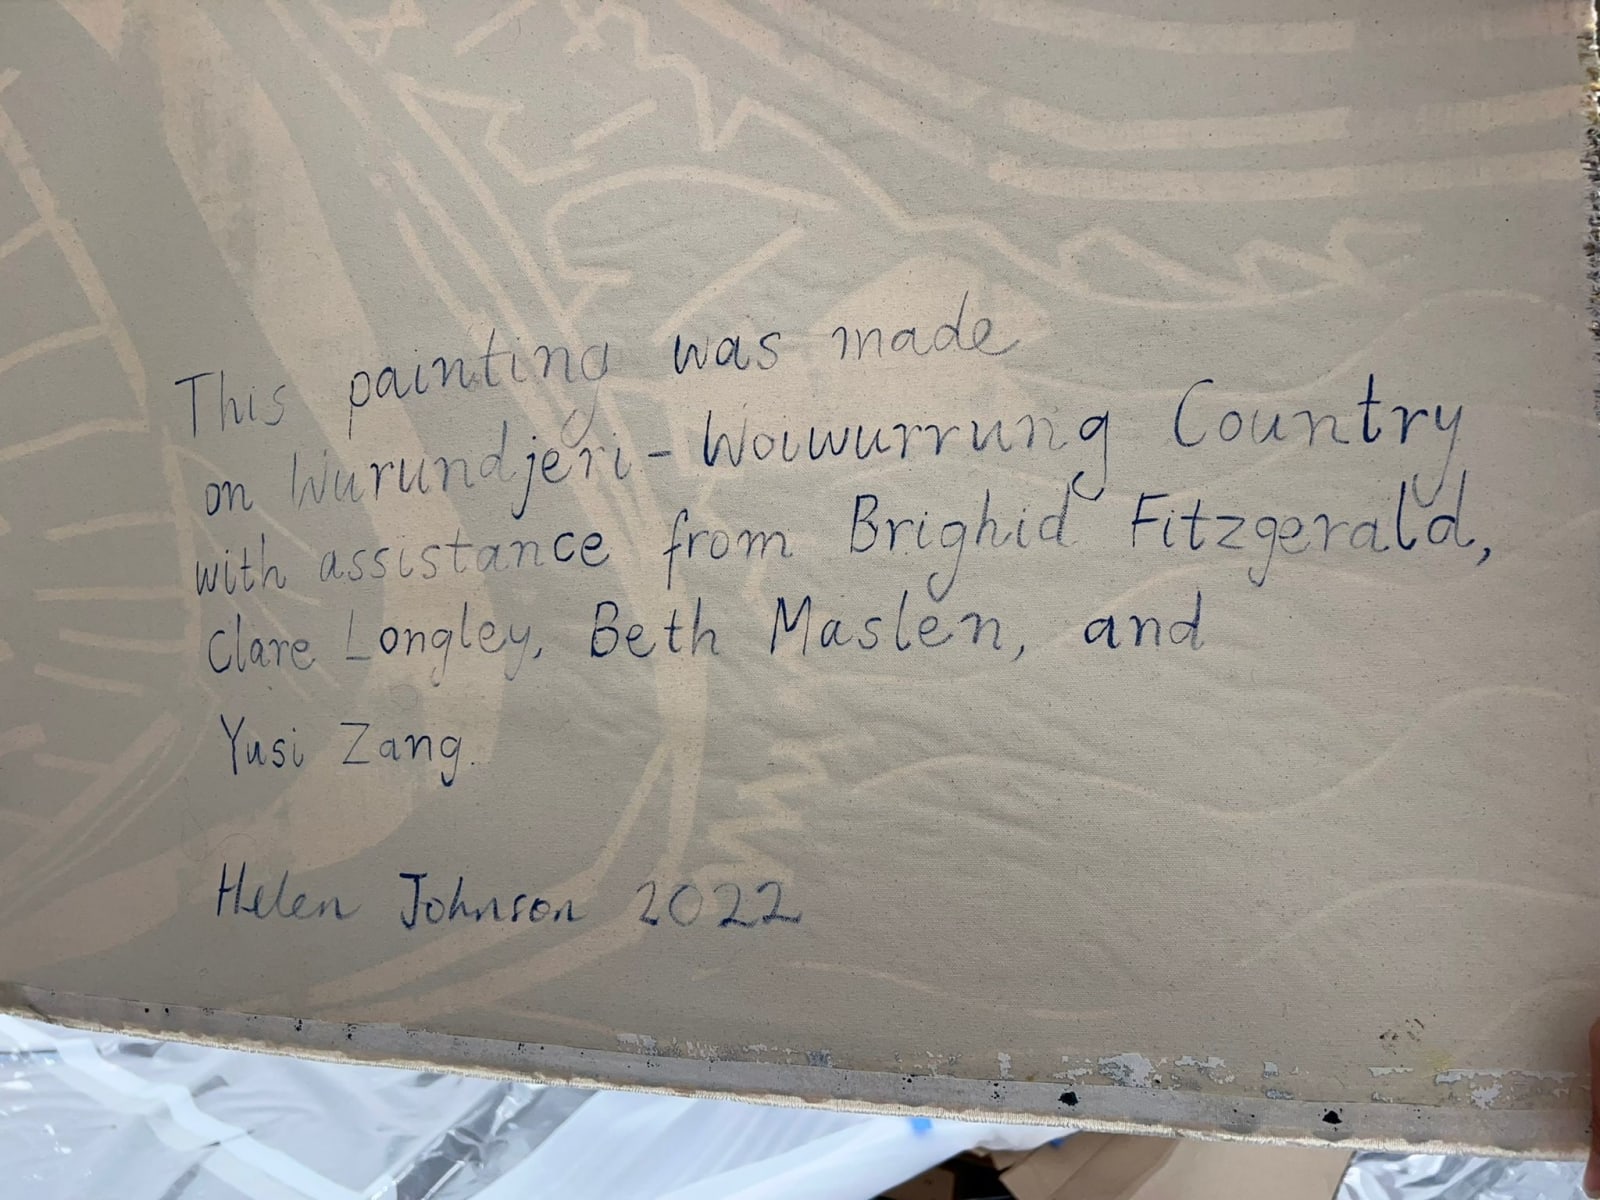 This painting was made
on Wurundjeri-Woiwurrung Country
with assistance from Brighid Fitzgerald,
Clare Longley, Beth Maslen, and
Yusi Zang.
Helen Johnson 2022